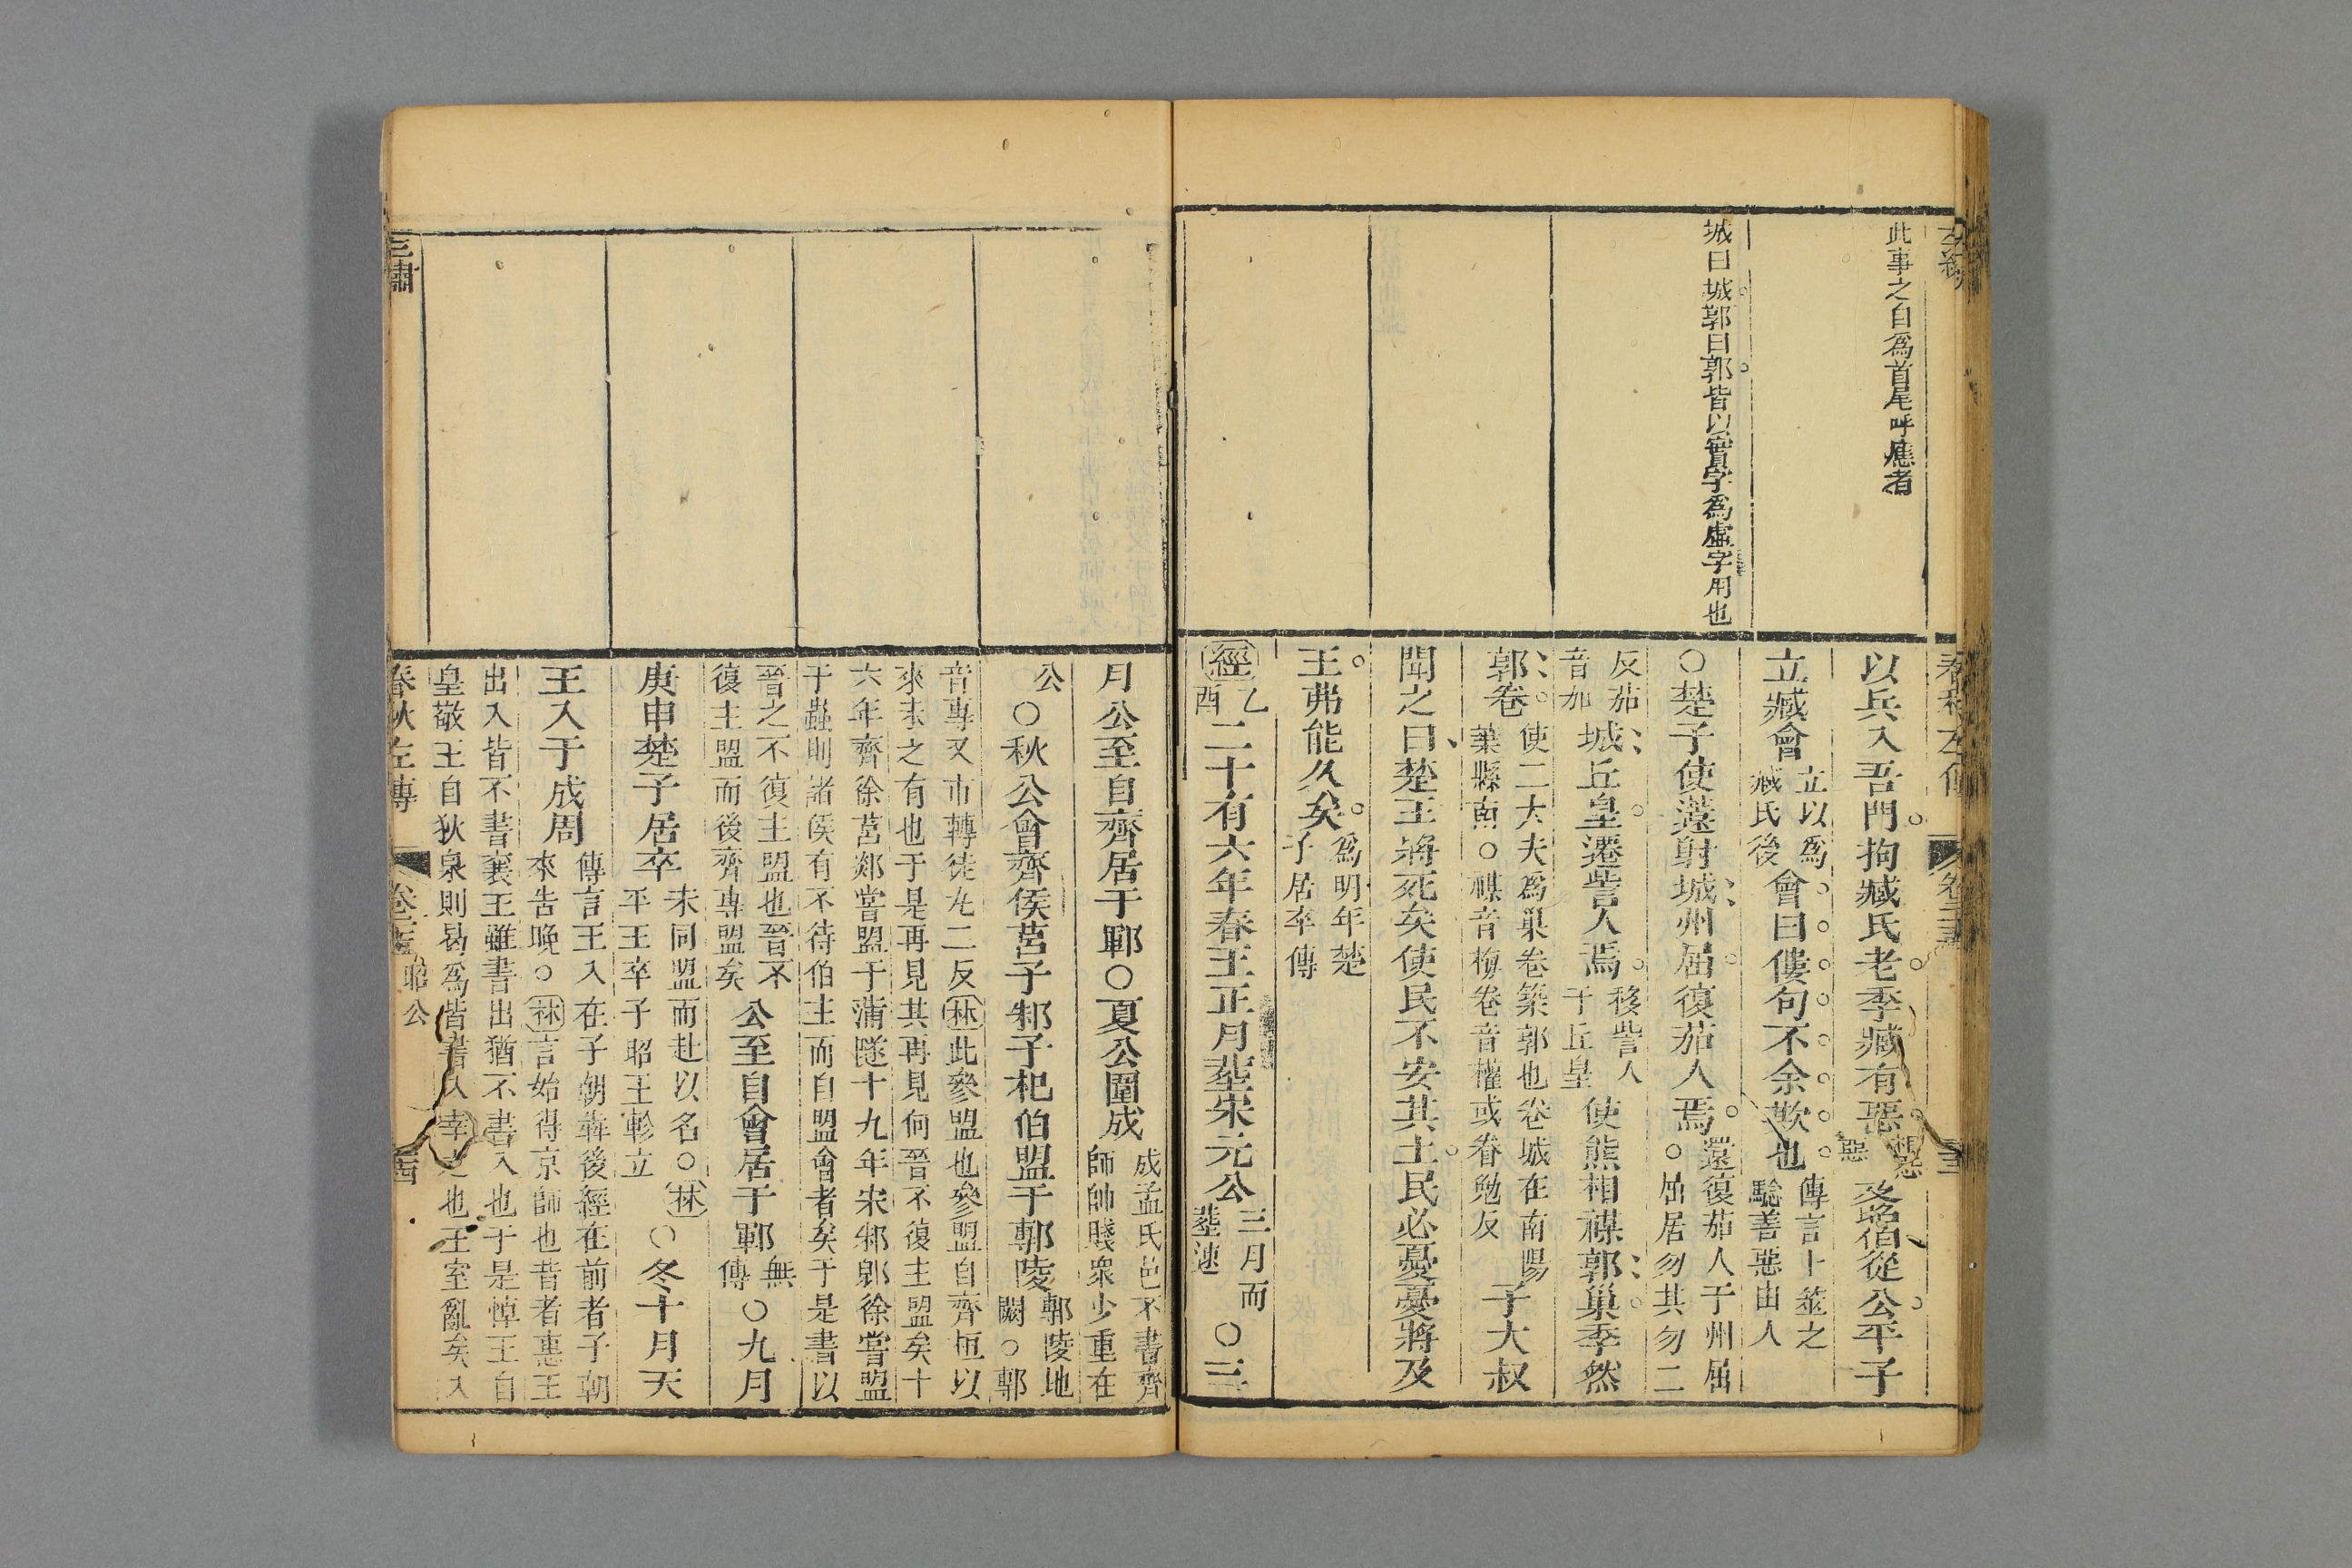 此事之自爲首尾呼應者
城曰城郭曰郭皆以實字爲虛字用也
以兵入吾門拘臧氏老季臧有惡相惡惡及昭伯從公平子
立臧會立以爲臧氏後會曰僂句不余欺也傳言卜筮之驗善惡由人
○楚子使薳射城州屈復茄人焉還復茄人于州屈○屈居勿其勿二
反茄音加城丘皇遷訾人焉移訾人于丘皇使熊相禖郭巢季然
郭卷使二大夫爲巢卷築郭也卷城在南陽葉縣南○禖音梅卷音權或眷勉反子大叔
聞之曰楚王將死矣使民不安其土民必憂憂將及
王弗能久矣爲明年楚子居卒傳
經乙酉二十有六年春王正月塟宋元公三月而塟速○三
月公至自齊居于鄆○夏公圍成成孟氏邑不書齊師帥賤衆少重在
公○秋公會齊侯莒子邾子杞伯盟于鄟陵鄟陵地闕○鄟
音專又市轉徒九二反林此參盟也參盟自齊桓以來未之有也于是再見其再見何晉不復主盟矣十
六年齊徐莒郯嘗盟于蒲隧十九年宋邾郳徐嘗盟于蟲則諸侯有不待伯主而自盟會者矣于是書以
晉之不復主盟也晉不復主盟而後齊專盟矣公至自會居于鄆無傳○九月
庚申楚子居卒未同盟而赴以名○林平王卒子昭王軫立○冬十月天
王入于成周傳言王入在子朝奔後經在前者子朝來告晚○林言始得京師也昔者惠王
出入皆不書襄王雖書出猶不書入也于是悼王自皇敬王自狄泉則曷爲皆書以幸之也王室亂矣入
春秋左傳
卷二十五
昭公